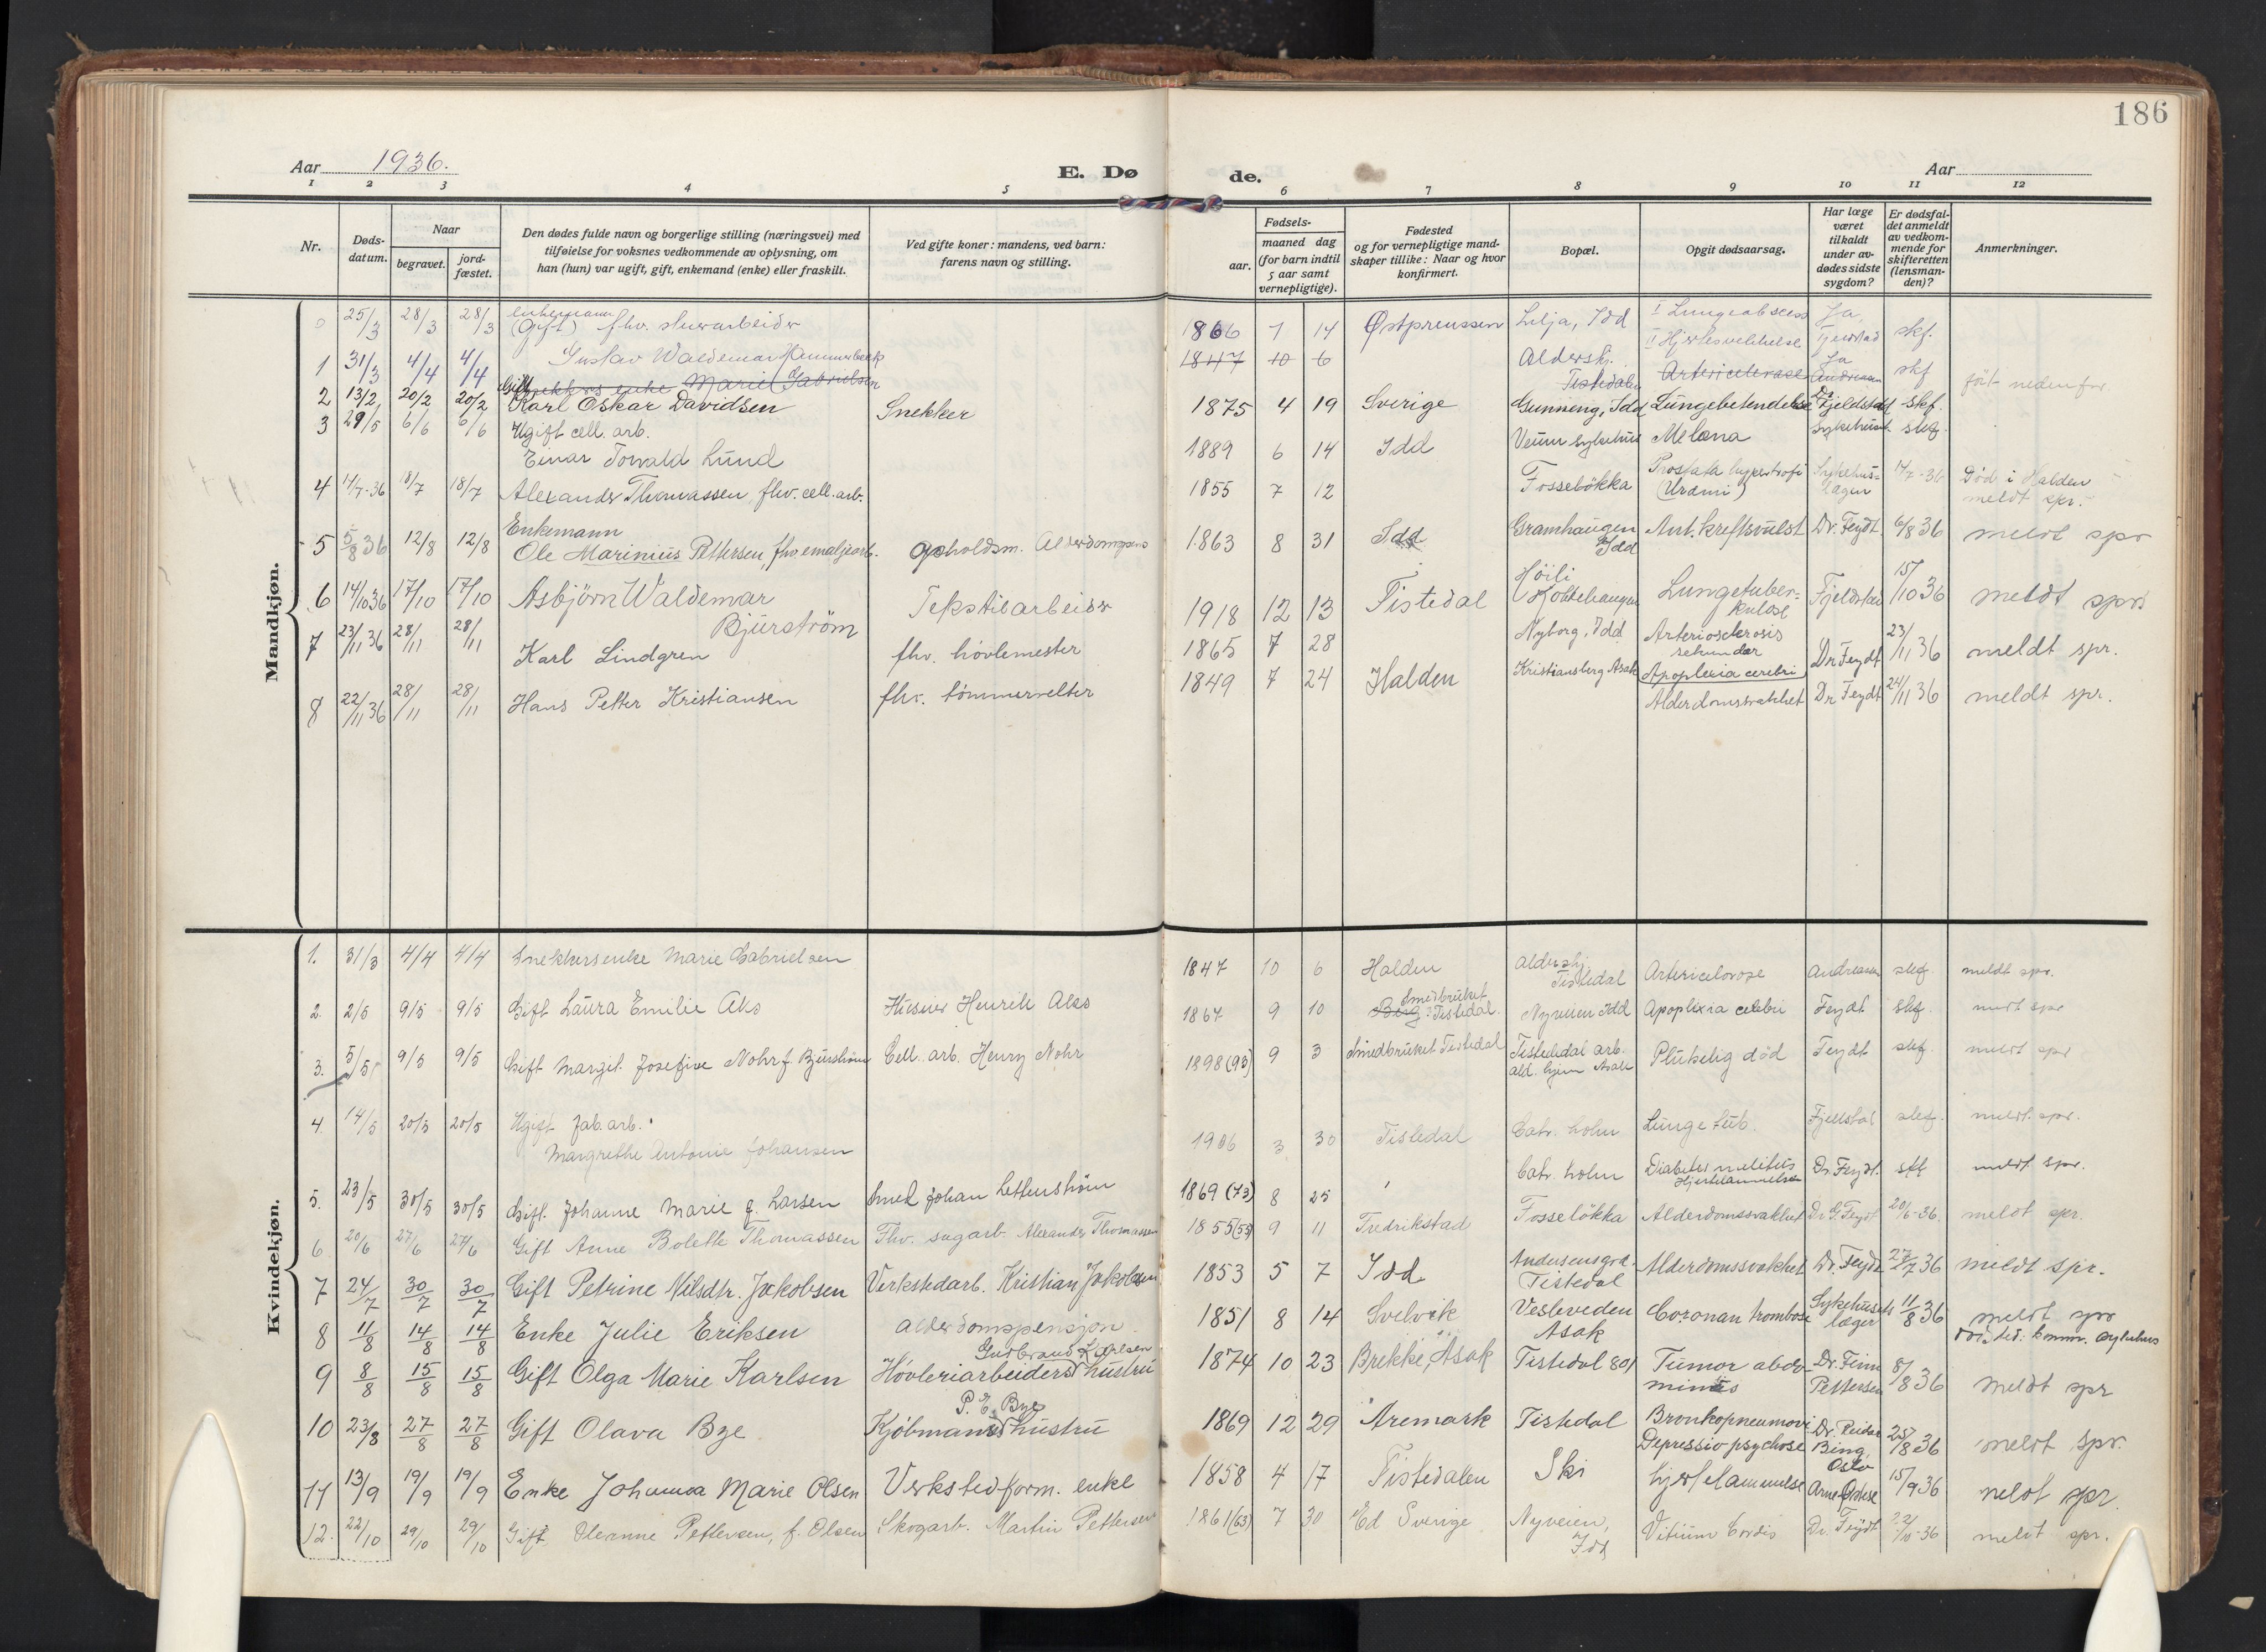 186
Aar 1936.
E. Dø
de.
Aar
1 2 3 4 5 6 7 8 9 10 11 12
Nr.
Døds-
datum.
Naar
begravet.
jord-
fæstet.
Den dødes fulde navn og borgerlige stilling (næringsvei) med
tilføielse for voksnes vedkommende av oplysning, om
han (hun) var ugift, gift, enkemand (enke) eller fraskilt.
Ved gifte koner: mandens, ved barn:
farens navn og stilling.
Fødsels-
aar.
maaned dag
(for barn indtil
5 aar samt
vernepligtige).
Fødested
og for vernepligtige mand-
skaper tillike: Naar og hvor
konfirmert.
Bopæl.
Opgit dødsaarsag.
Har læge
været
tilkaldt
under av-
dødes sidste
sygdom?
Er dødsfal-
det anmeldt
av vedkom-
mende for
skifteretten
(lensman-
den)?
Anmerkninger.
Mandkjøn.
0 25/3 28/3 28/3 enkemann (Gift) fhv. murarbeider 1866 1 14 Østpreussen Lilja, Idd I Lungeabscess Ja, skf.
Gustav Waldemar Hammerbeck II Hjertesvekkelse Fjeldstad
1 31/3 4/4 4/4 Snekkers enke Marie Gabrielsen 1847 10 6 Aldershj. Tistedalen Artericelerose Ja Andreasen skf ført nedenfor.
2 13/2 20/2 20/2 Gift Karl Oskar Davidsen Snekker 1875 4 19 Sverige Gunneng, Idd Lungebetendelse Dr Fjeldstad skf.
3 29/5 6/6 6/6 Ugift cell. arb. 1889 6 14 Idd Veum sykehus Melæna Sykehuset skf.
Einar Torvald Lund
4 14/7-36 18/7 18/7 Alexander Thomassen, fhv. cell. arb. 1855 7 12 Fosseløkka Prostata hypertrofi (Urämi) Sykehus-lægen 14/7-36 Død i Halden meldt spr.
5 5/8 36 12/8 12/8 Enkemann
Ole Marinius Pettersen, fhv. emaljearb. opholdsm. Alderdomspens 1863 8 31 Idd Gramhaugen Idd Ant. kreftsvulst Dr. Feydt 6/8 36 meldt spr
6 14/10 36 17/10 17/10 Asbjörn Waldemar Bjurström Tekstilarbeider 1918 12 13 Tistedal Høili Kokkehaugen Lungetuber-kulose Fjeldstad 15/10 36 meldt spr
7 23/11 36 28/11 28/11 Karl Lindgren fhv. høvlemester 1865 7 28 Nyborg, Idd Arteriosclerosis sekundær Apoplexia cerebri Dr Feydt 23/11 36 meldt spr.
8 22/11 36 28/11 28/11 Hans Petter Kristiansen fhv. tømmervelter 1849 7 24 Halden Kristiansberg Asak Alderdomssvakhet Dr Feydt 24/11 36 meldt spr.
Kvindekjøn.
1. 31/3 4/4 4/4 Snekkersenke Marie Gabrielsen 1847 10 6 Halden Aldershj. Tistedal Artericelerose Andreasen skf. meldt spr.
2. 2/5 9/5 9/5 Gift Laura Emilie Aks Huseier Henrik Aks 1867 9 10 Berg Smedbruket Tistedal. Nyveien Idd Apoplexia celebri Feydt skf. meldt spr
3. 5/5 9/5 9/5 Gift Margit Josefine Nohr f. Bjurstrøm Cell. arb. Henry Nohr 1898 (93) 9 3 Smedbruket Tistedal Tistedal arb. ald. hjem Asak Plutselig død Feydt skf. meldt spr
4 14/5 20/5 20/5 Ugift fab. arb. 1906 3 30 Tistedal Catr. holm Lunge tub. Fjellstad skf. meldt spr.
Margrethe Antonie Johansen
5. 23/5 30/5 30/5 Gift. Johanne Marie f. Larsen Smed Johan Lettenstrøm 1869 (73) 8 25 Catr. holm Diabetes melitus Hjertelammelse Dr. Feydt. skf meldt spr.
6 20/6 27/6 27/6 Gift Anne Bolette Thomassen Fhv. sagarb. Alexander Thomassen 1855 (53) 9 11 Fredrikstad Fosseløkka Alderdomssvakhet Dr G. Feydt 20/6-36. meldt spr.
7 24/7 30/7 30/7 Gift Petrine Nilsdtr. Jakobsen Verkstedarb. Kristian Jakobsen 1853 5 7 Idd. Andersengrd. Tistedal Alderdomssvakhet Dr. Feydt 27/7 36 meldt spr.
8 11/8 14/8 14/8 Enke Julie Eriksen Alderdomspensjon 1851 8 14 Svelvik Vesleveden Asak Coronan trombose Sykehusets læger 11/8 36 meldt spr
død sted: komm. sykehus
9 8/8 15/8 15/8 Gift Olga Marie Karlsen Høvleriarbeiders Gudbrand Karlsen hustru 1874 10 23 Brekke, Asak Tistedal 801 Tumor abdo-minis Dr. Finn Pettersen 8/8 36 meldt spr
10 23/8 27/8 27/8 Gift Olava Bye Kjøbmann P. E. Bye hustru 1869 12 29 Aremark Tistedal Bronkopneumoni Depressio psychose Dr. Reidar Bing, Oslo 25/8 36 meldt spr.
11 13/9 19/9 19/9 Enke Johanna Marie Olsen Verkstedform. enke 1858 4 17 Tistedalen Ski hjertelammelse Arne 15/9 36 meldt spr.
12. 22/10 29/10 29/10 Gift Oleanne Pettersen, f. Olsen Skogarb. Martin Pettersen 1861 (63) 7 30 Ed Sverige Nyveien, Idd Vitium Cordis Dr. Feydt 22/10-36 meldt spr.